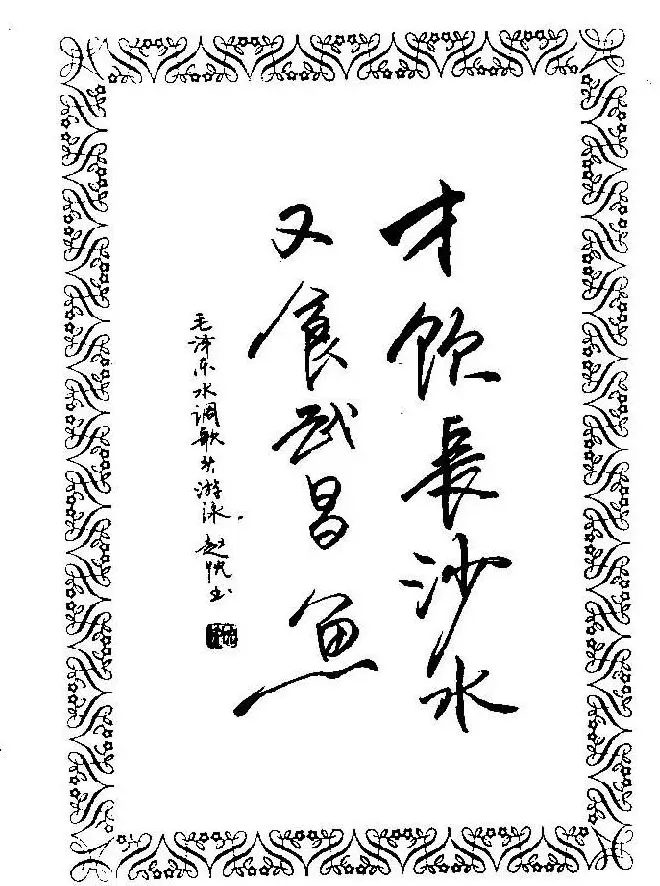 才飲長沙水
又食武昌魚
毛泽东水调歌头游泳 赵 书